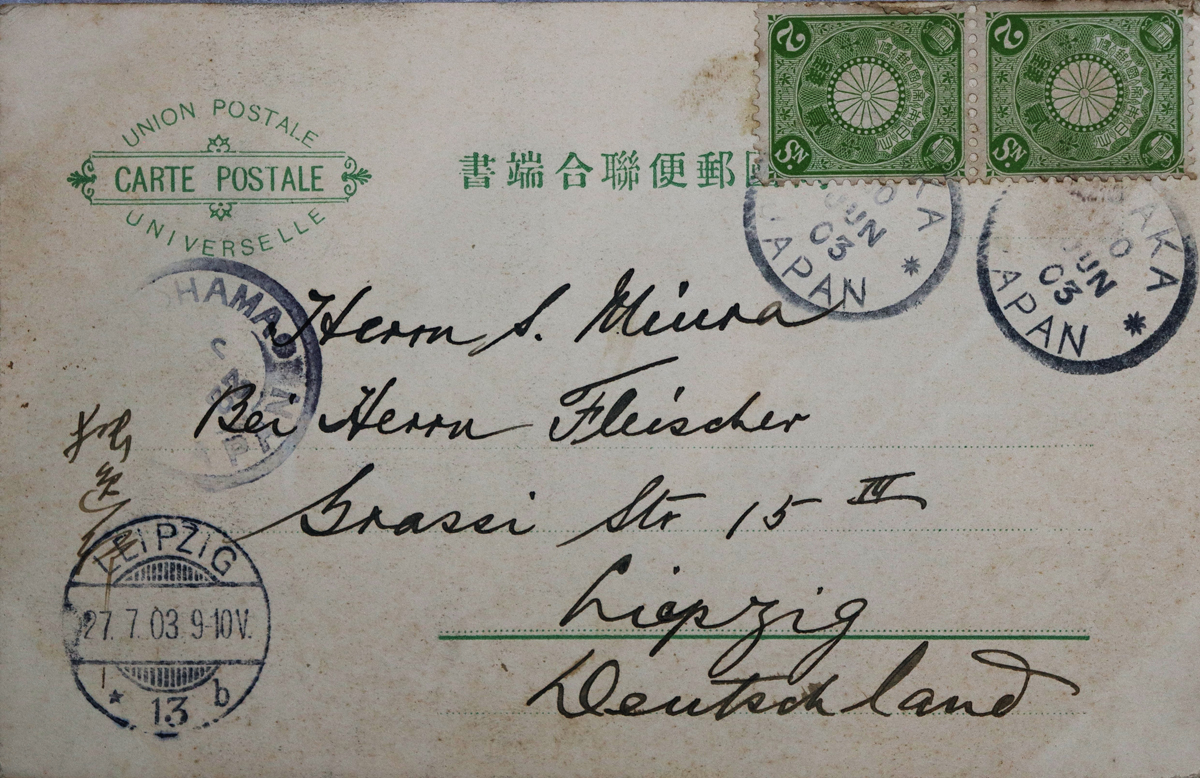 UNION POSTALE
CARTE POSTALE
UNIVERSELLE
書端合聯便郵國
2 2
SN SN
AKA
JUN
03
JAPAN
AKA
JUN
03
JAPAN
OHAMA
Herrn S. Miura
Bei Herrn Fleischer
Grassi Str 15 III
Liepzig
Deutschland
LEIPZIG
27. 7. 03. 9-10V.
* 13 b